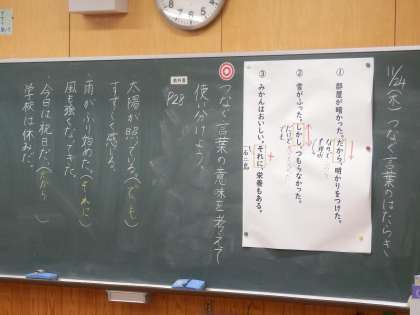 11/24(木) つなぐ言葉のはたらき
① 部屋が暗かった。だから、明かりをつけた。
② 雪がふった。しかし、つもらなかった。
でも
③ みかんはおいしい。それに、栄養もある。
つなぐ言葉の意味を考えて
使い分けよう。
教科書
P28
太陽が照っている。(でも)
すずしく感じる。
雨がふり始めた。(それに)
風も強くなってきた。
今日は祝日だ。(だから)
学校は休みだ。